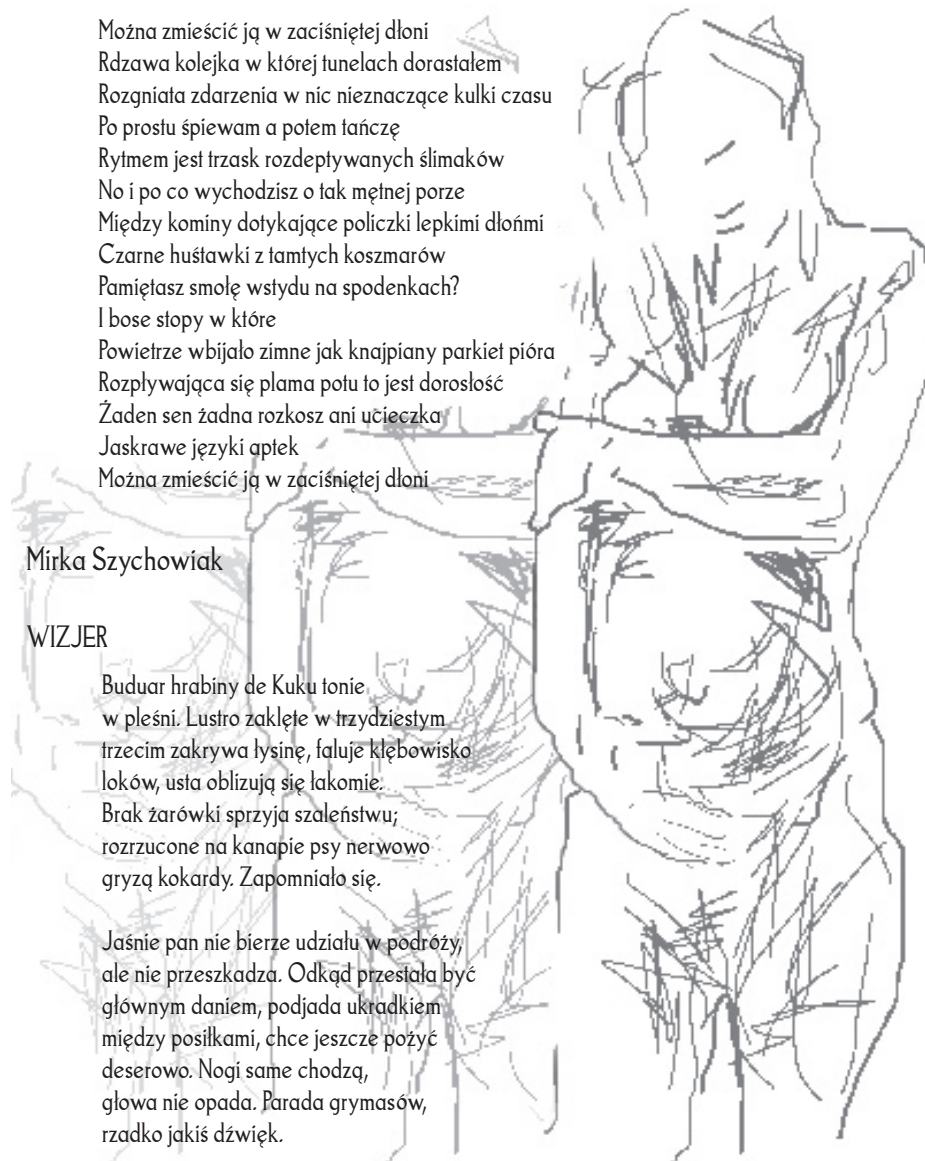 Można zmieścić ją w zaciśniętej dłoni
Rdzawa kolejka w której tunelach dorastałem
Rozgniata zdarzenia w nic nieznaczące kulki czasu
Po prostu śpiewam a potem tańczę
Rytmem jest trzask rozdeptywanych ślimaków
No i po co wychodzisz o tak mętnej porze
Między kominy dotykające policzki lepkimi dłońmi
Czarne huśtawki z tamtych koszmarów
Pamiętasz smołę wstydu na spodenkach?
I bose stopy w które
Powietrze wbijało zimne jak knajpiany parkiet pióra
Rozpływająca się plama potu to jest dorosłość
Żaden sen żadna rozkosz ani ucieczka
Jaskrawe języki aptek
Można zmieścić ją w zaciśniętej dłoni
Mirka Szychowiak
WIZJER
Buduar hrabiny de Kuku tonie
w pleśni. Lustro zaklęte w trzydziestym
trzecim zakrywa łysinę, faluje kłębowisko
loków, usta oblizują się łakomie.
Brak żarówki sprzyja szaleństwu;
rozrzucone na kanapie psy nerwowo
gryzą kokardy. Zapomniało się.
Jaśnie pan nie bierze udziału w podróży,
ale nie przeszkadza. Odkąd przestała być
głównym daniem, podjada ukradkiem
między posiłkami, chce jeszcze pożyć
deserowo. Nogi same chodzą,
głowa nie opada. Parada grymasów,
rzadko jakiś dźwięk.